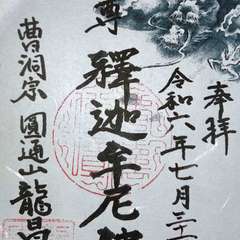 奉拜
令和六年七月三十
尊 釋迦牟尼
曹洞宗 圓通山 龍昌